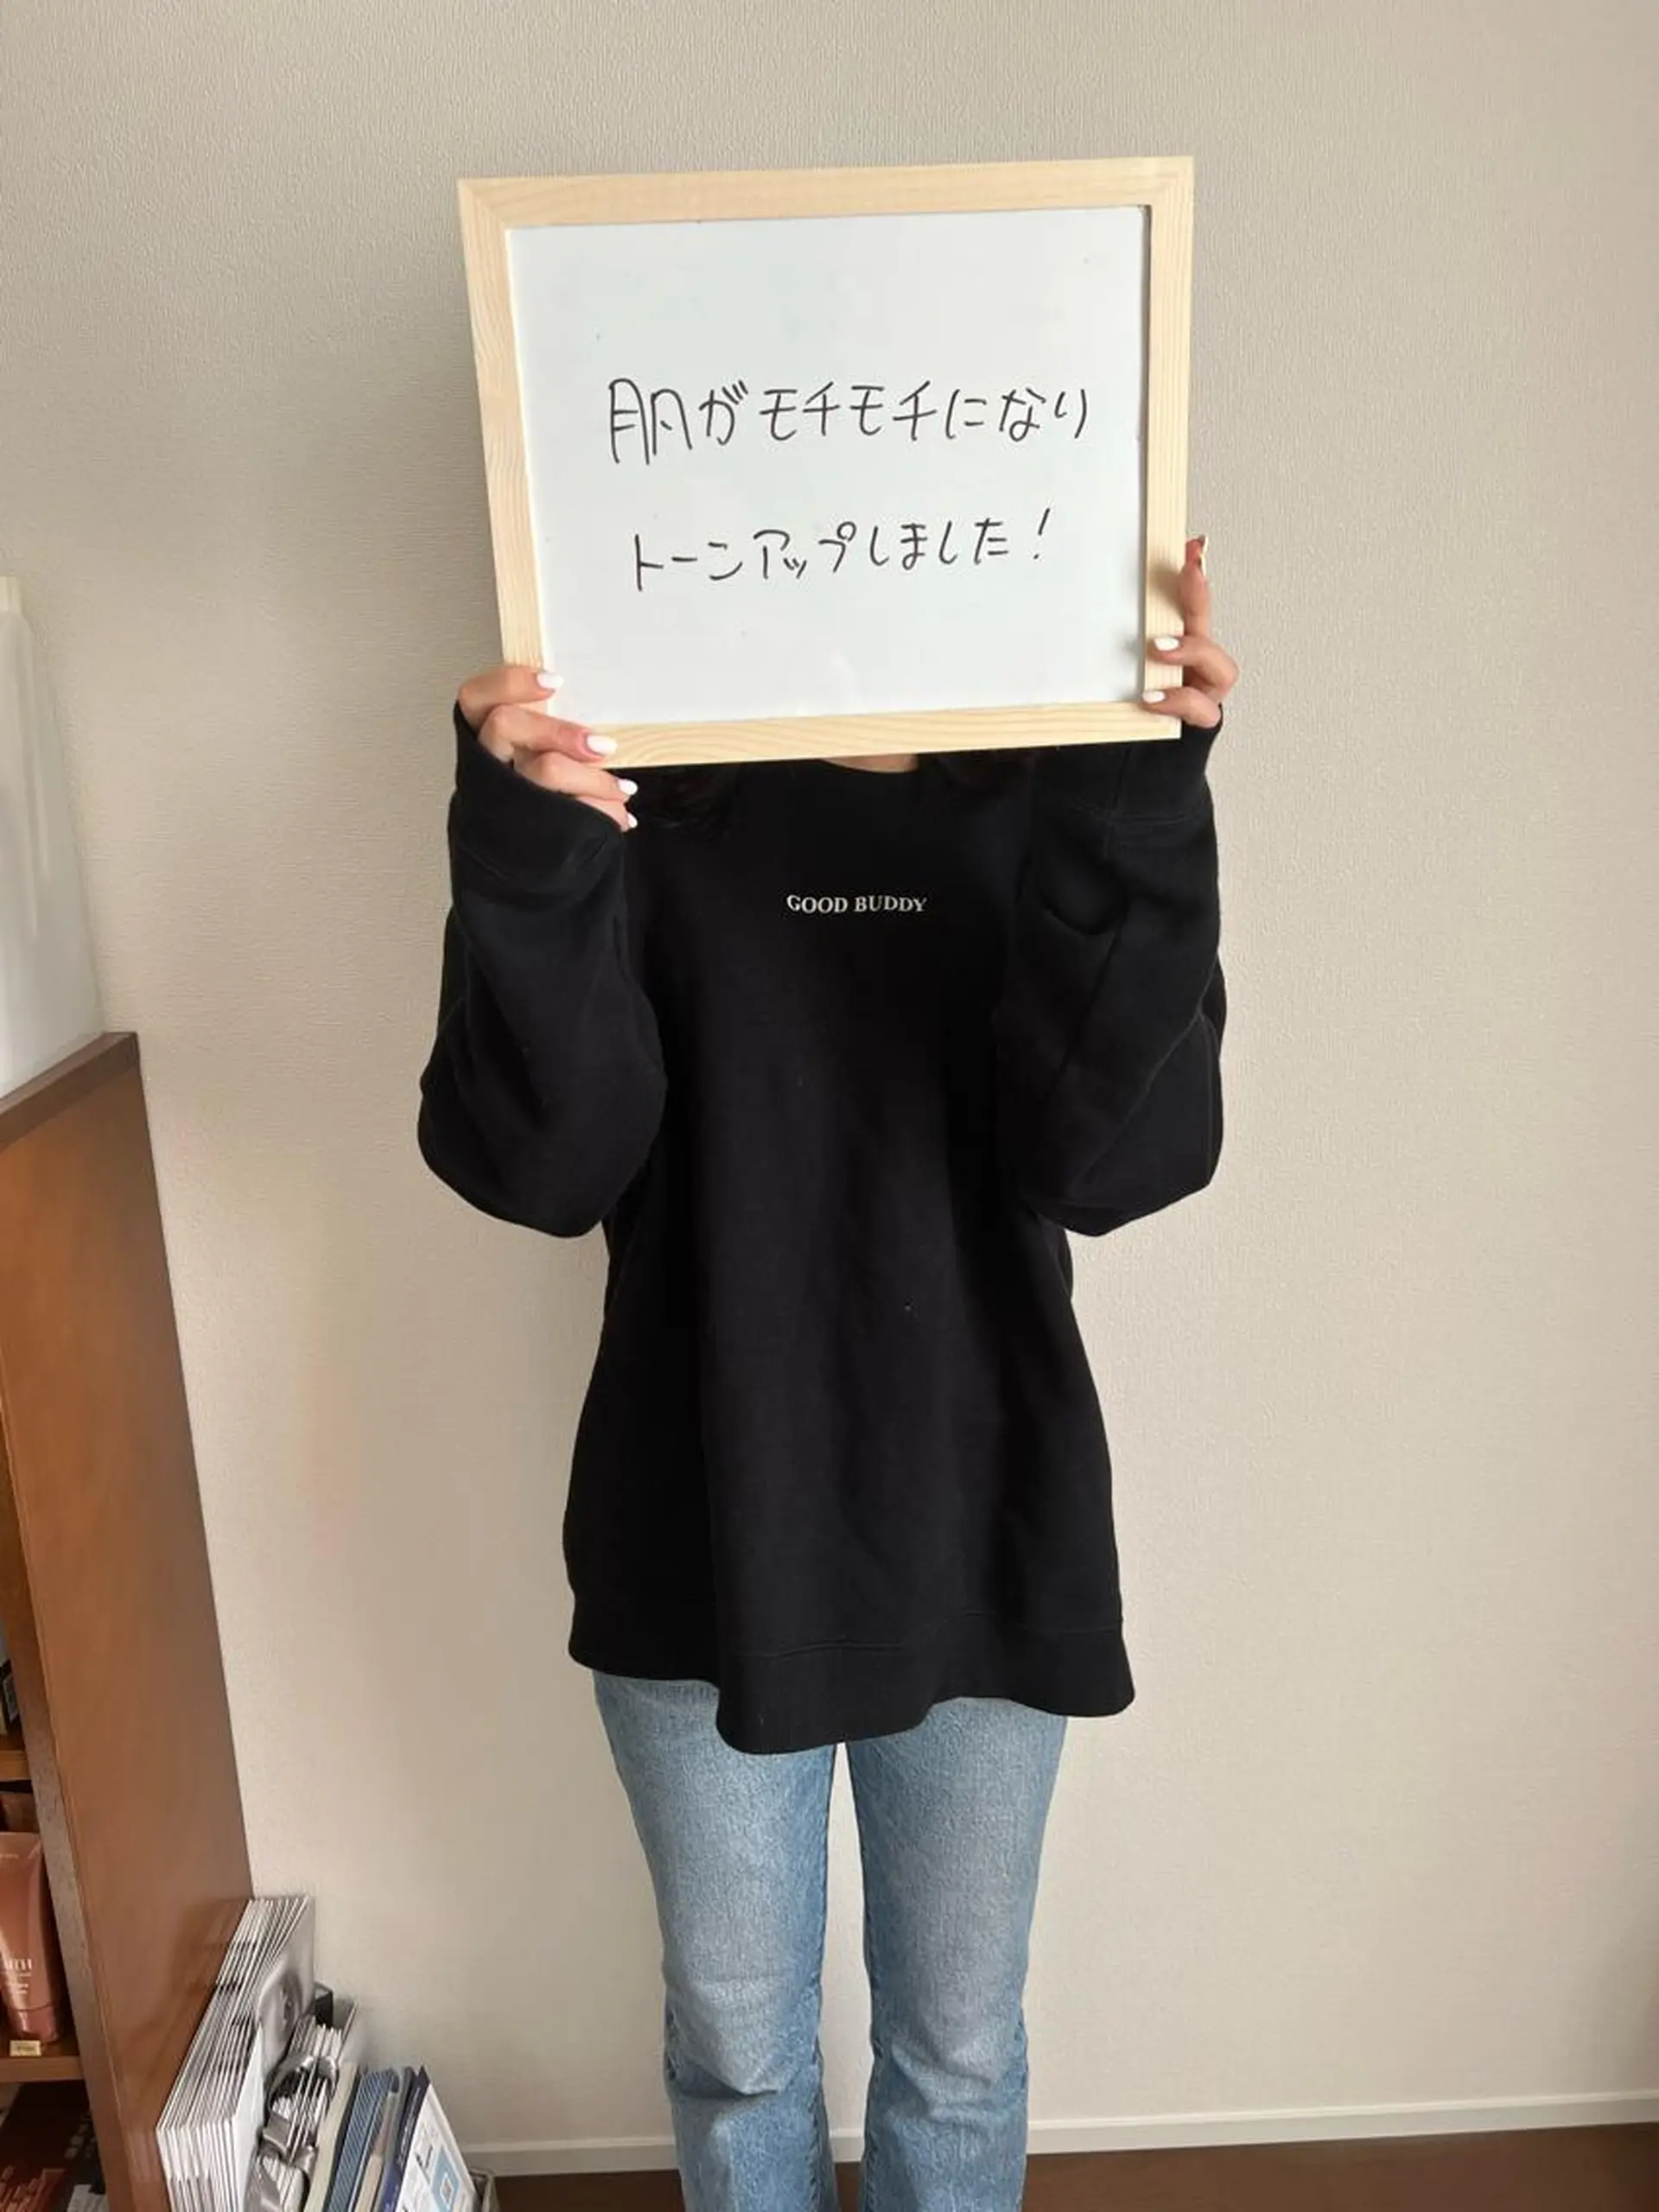 肌がモチモチになり
トーンアップしました!
GOOD BUDDY